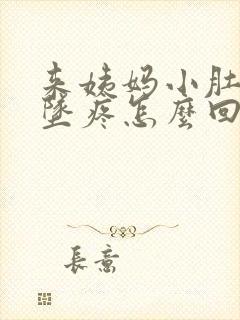 来姨妈小肚
墜疼怎麼回
長意